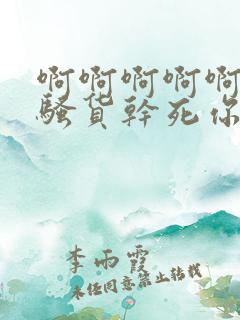 啊啊啊啊啊
骚货幹死你
李雨霞
未经同意禁止转载